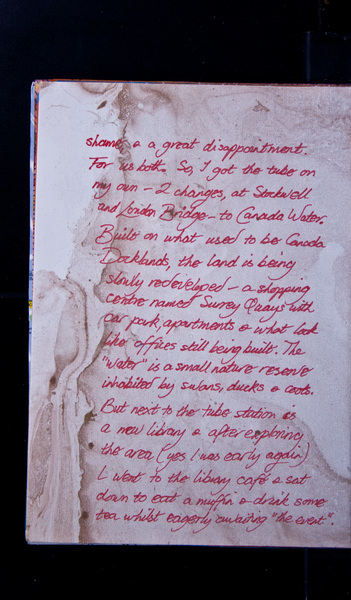 shame, & a great disappointment.
For us both. So, I got the tube on
my own - 2 changes, at Stockwell
and London Bridge - to Canada Water.
Built on what used to be Canada
Docklands, the land is being
slowly redeveloped - a shopping
centre named Surrey Quays with
car park, apartments & what look
like offices still being built. The
"water" is a small nature reserve
inhabited by swans, ducks & coots.
But next to the tube station is
a new library & after exploring
the area (yes I was early again)
I went to the library café & sat
down to eat a muffin & drink some
tea whilst eagerly awaiting "the event".